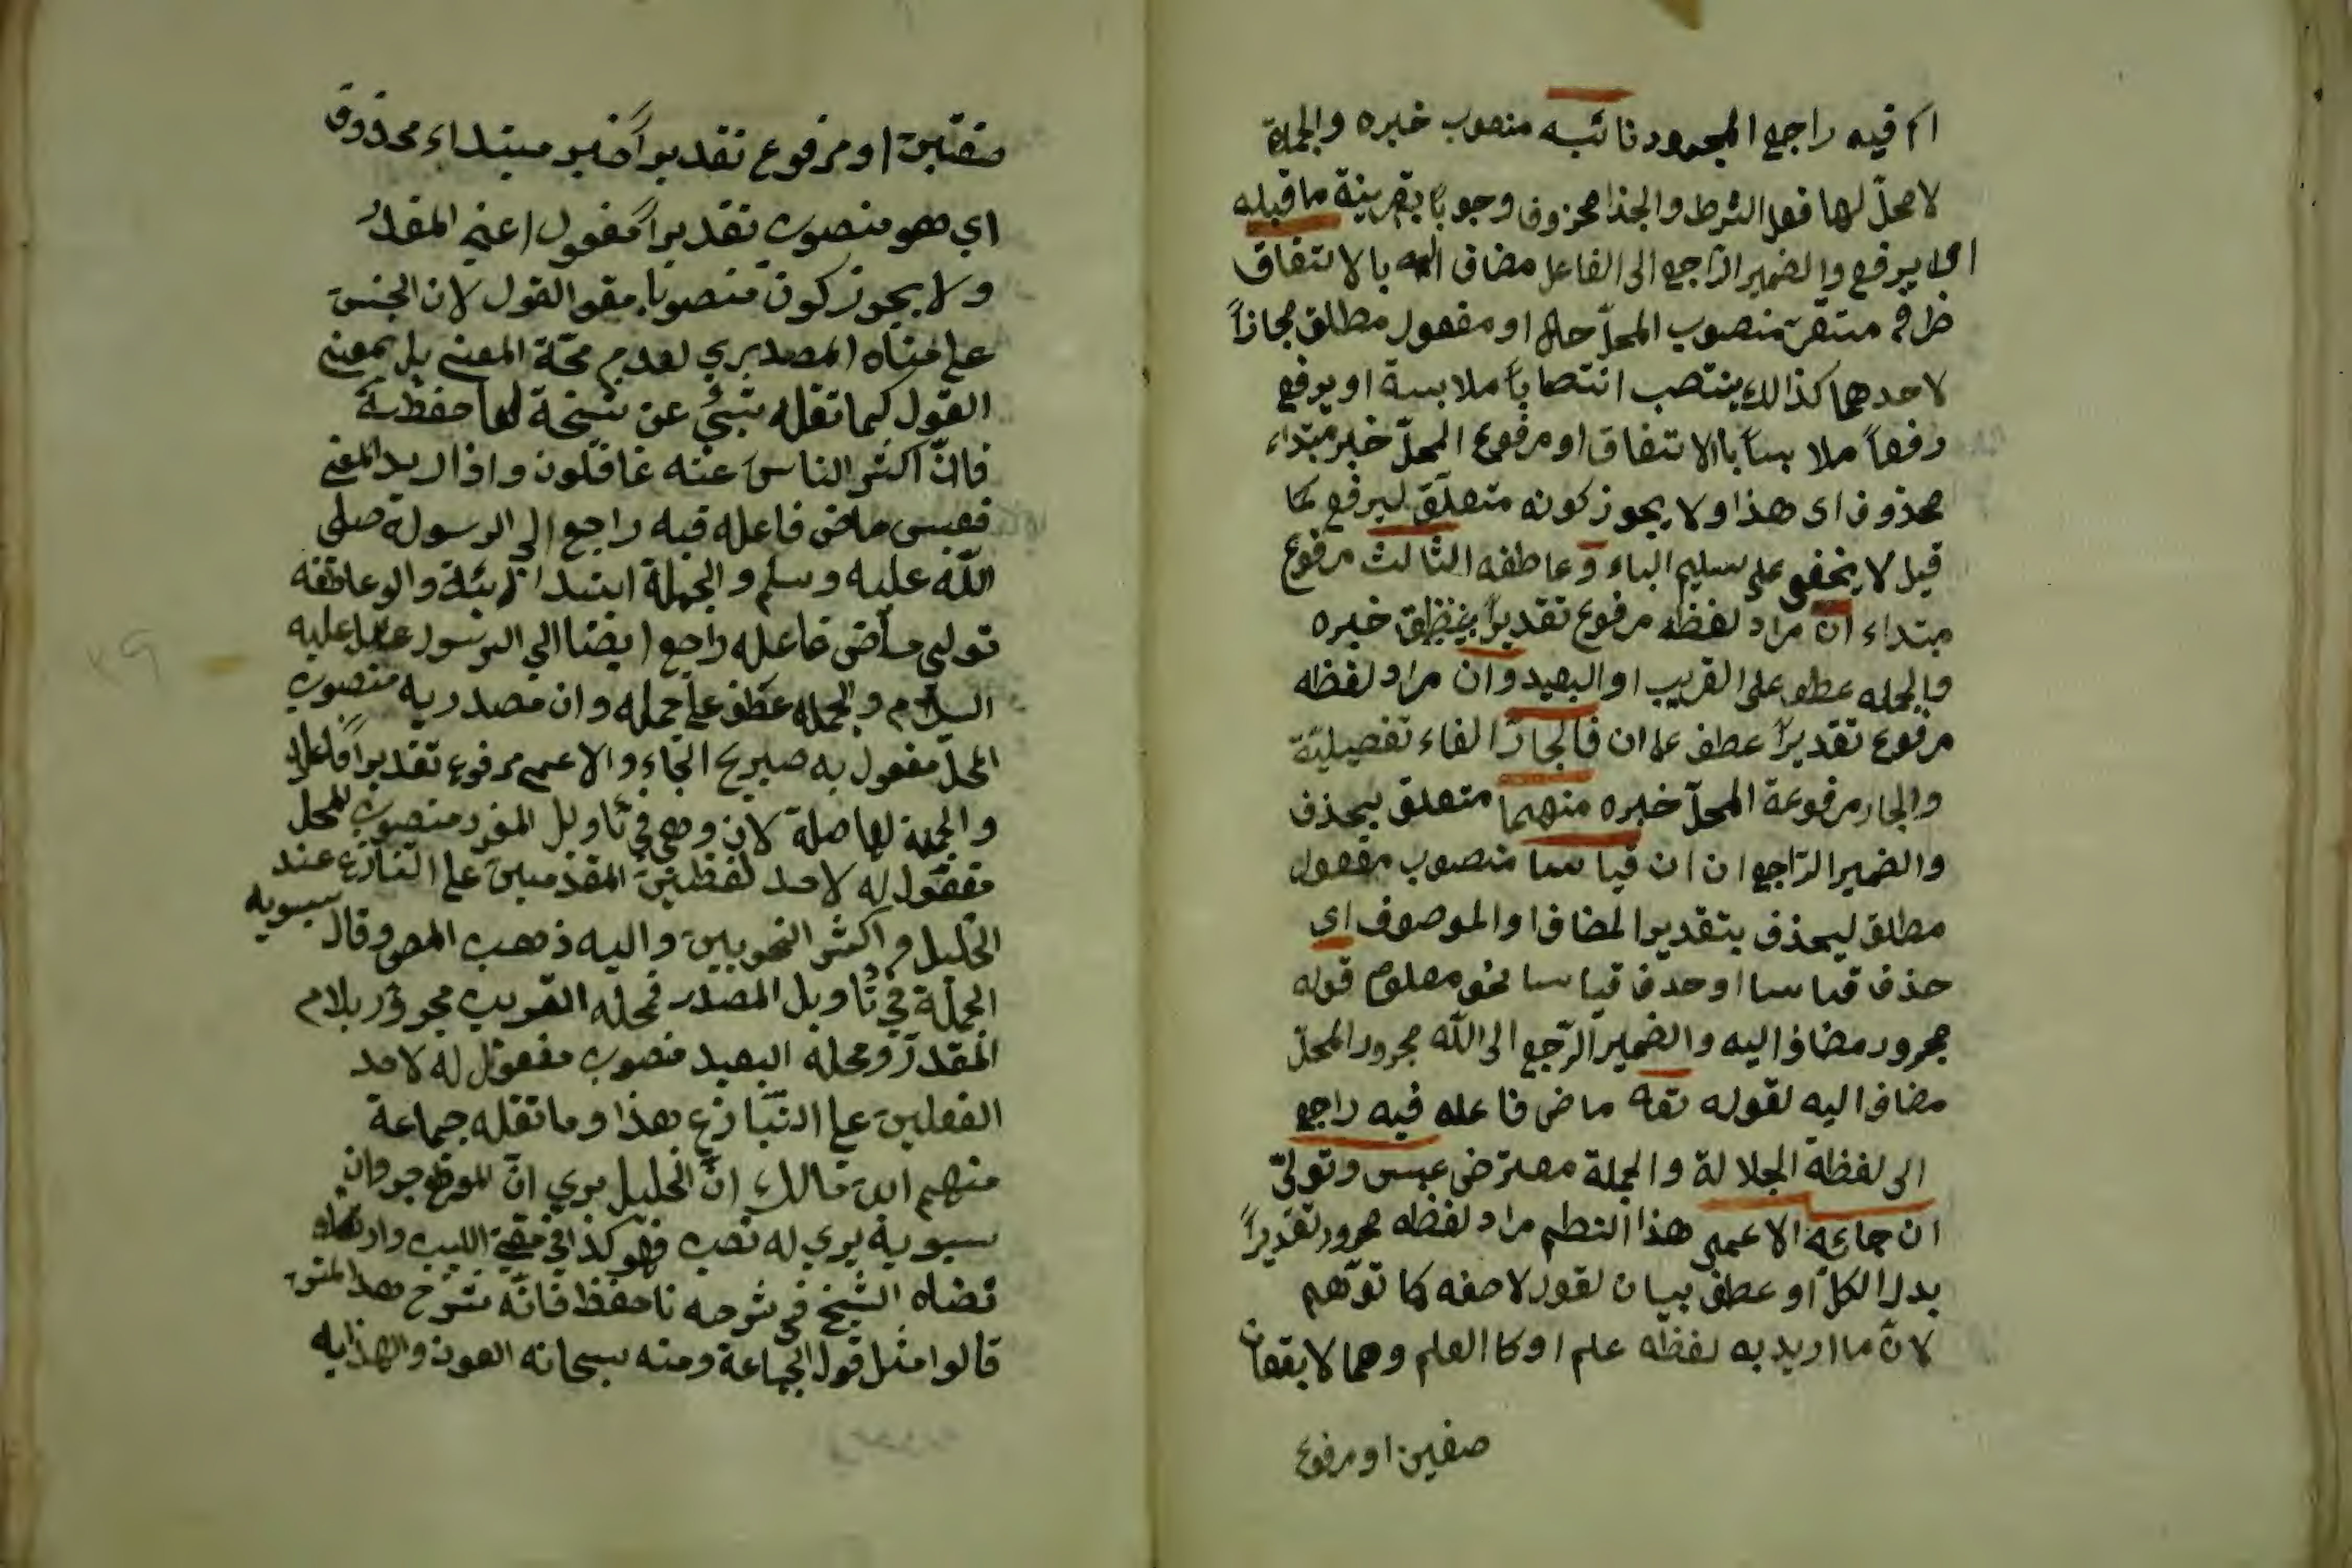 اكم فيه راجع المجرور نائبه منصوب خبره والجملة
لا محلّ لها فعل الشرط والجذا محزوف وجوباً بقرينة ما قبله
اى يرفع والضمير الرّاجع الى الفاعل مضاف اليه بالاتفاق
ظرف مستقرّ منصوب المحلّ حال او مفعول مطلق مجازاً
لاحدهما كذالك ينتصب انتصاباً ملابسة او يرفع
رفعاً ملابساً بالاتفاق او مرفوع المحلّ خبر مبتداء
محذوف اى هذا ولا يجوز كونه متعلّق ليرفع كما
قيل لا يخفى على سليم الباء و عاطفه الثالث مرفوع
مبتداء ان مراد لفظه مرفوع تقديراً خبره
والجمله عطف على القريب او البعيد وان مراد لفظه
مرفوع تقديراً عطف على ان فالجارّ الفاء تفصيليّة
والجار مرفوعة المحلّ خبره منهما متعلق بيحذف
والضمير الرّاجع ان ان قياسا منصوب مفعول
مطلق ليحذف بتقدير المضاف او الموصوف اى
حذف قياسا او حدف قياسا نحو معلوم قوله
مجرور مضاف اليه والضمير الرّجع الى الله مجرور المحلّ
مضاف اليه لقوله تعه ماض فاعله فيه راجع
الى لفظة الجلالة والجملة معترض عبس وتولىّ
ان جاءه الاعمى هذا النظم مراد لفظه مجرور تقديراً
بدل الكلّ او عطف بيان لقول لا صفه كما توّهم
لانّ ما اريد به لفظه علم او كا العلم وهما لا يقعان
صفين او مرفوع
صفتين او مرفوع تقديراً خبر مبتداء محذوف
اي هو منصوب تقديراً مفعول اعني المقدّر
ولا يجوز كون منصوبا مقو القول لان الجنس
على معناه المصدري لعدم صحّة المعنى بل بمعنى
القول كما نقله عن نسخة لها حفظة
فانّ اكثر الناس عنه غافلون واذا اريد المعنى
فعبس ماض فاعله فيه راجع الى الرسولة صلى
اللّه عليه وسلم والجملة ابتدائية والو عاطفه
تولى ماض فاعله راجع ايضا الي الرسول عليه
السلام والجمله عطف على جمله وان مصدريه منصوب
المحلّ مفعول به صيريح الجاء والاعمى مرفوع تقديراً فاعله
والجملة لها صلة لان وهي في تاويل المفرد منصوب المحل
مفعول له لاحد لفظين المقدمين على التنازع عند
الخليل واكثر النحويين واليه ذهب المص وقال سيبويه
الجملة في تاويل المصدر فمحله القريب مجرور بلام
المقدر ومحله البعيد منصوب مفعول له لاحد
الفعلين على التنازع هذا وما نقله جماعة
منهم ابن مالك انّ الخليل يري انّ الموضع جر وان
سيبوية يري له نصب فهو كذا في مغني اللبيب وار
تضاه الشيخ في شرحه فاحفظ فانّه شرح هذا المتن
قالوا مثل قول الجماعة ومنه سبحانه العون والهدايه